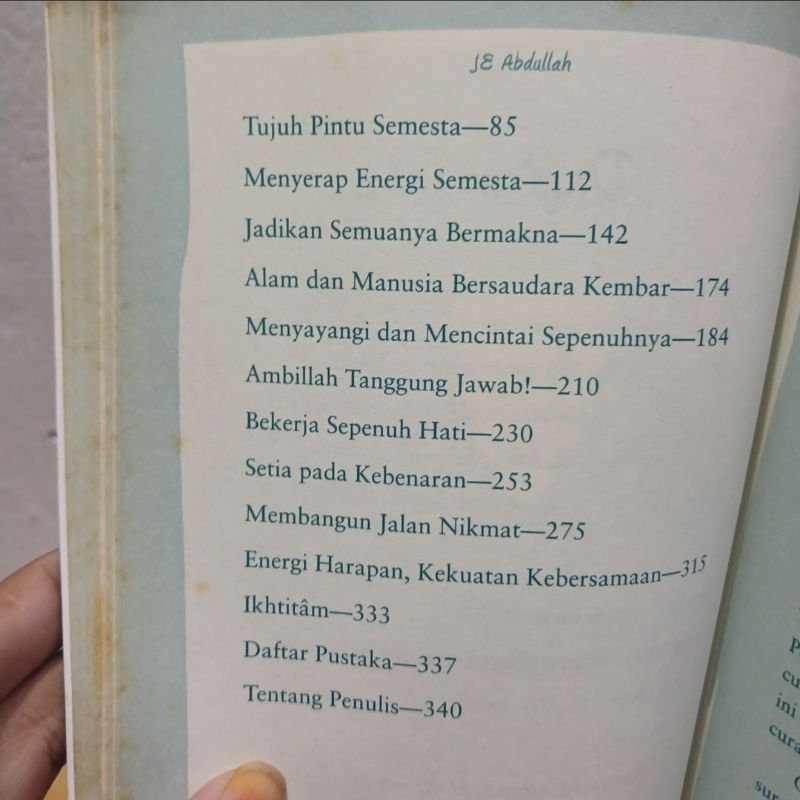 JE Abdullah
Tujuh Pintu Semesta—85
Menyerap Energi Semesta—112
Jadikan Semuanya Bermakna—142
Alam dan Manusia Bersaudara Kembar—174
Menyayangi dan Mencintai Sepenuhnya—184
Ambillah Tanggung Jawab!—210
Bekerja Sepenuh Hati—230
Setia pada Kebenaran—253
Membangun Jalan Nikmat—275
Energi Harapan, Kekuatan Kebersamaan—315
Ikhtitâm—333
Daftar Pustaka—337
Tentang Penulis—340
ini